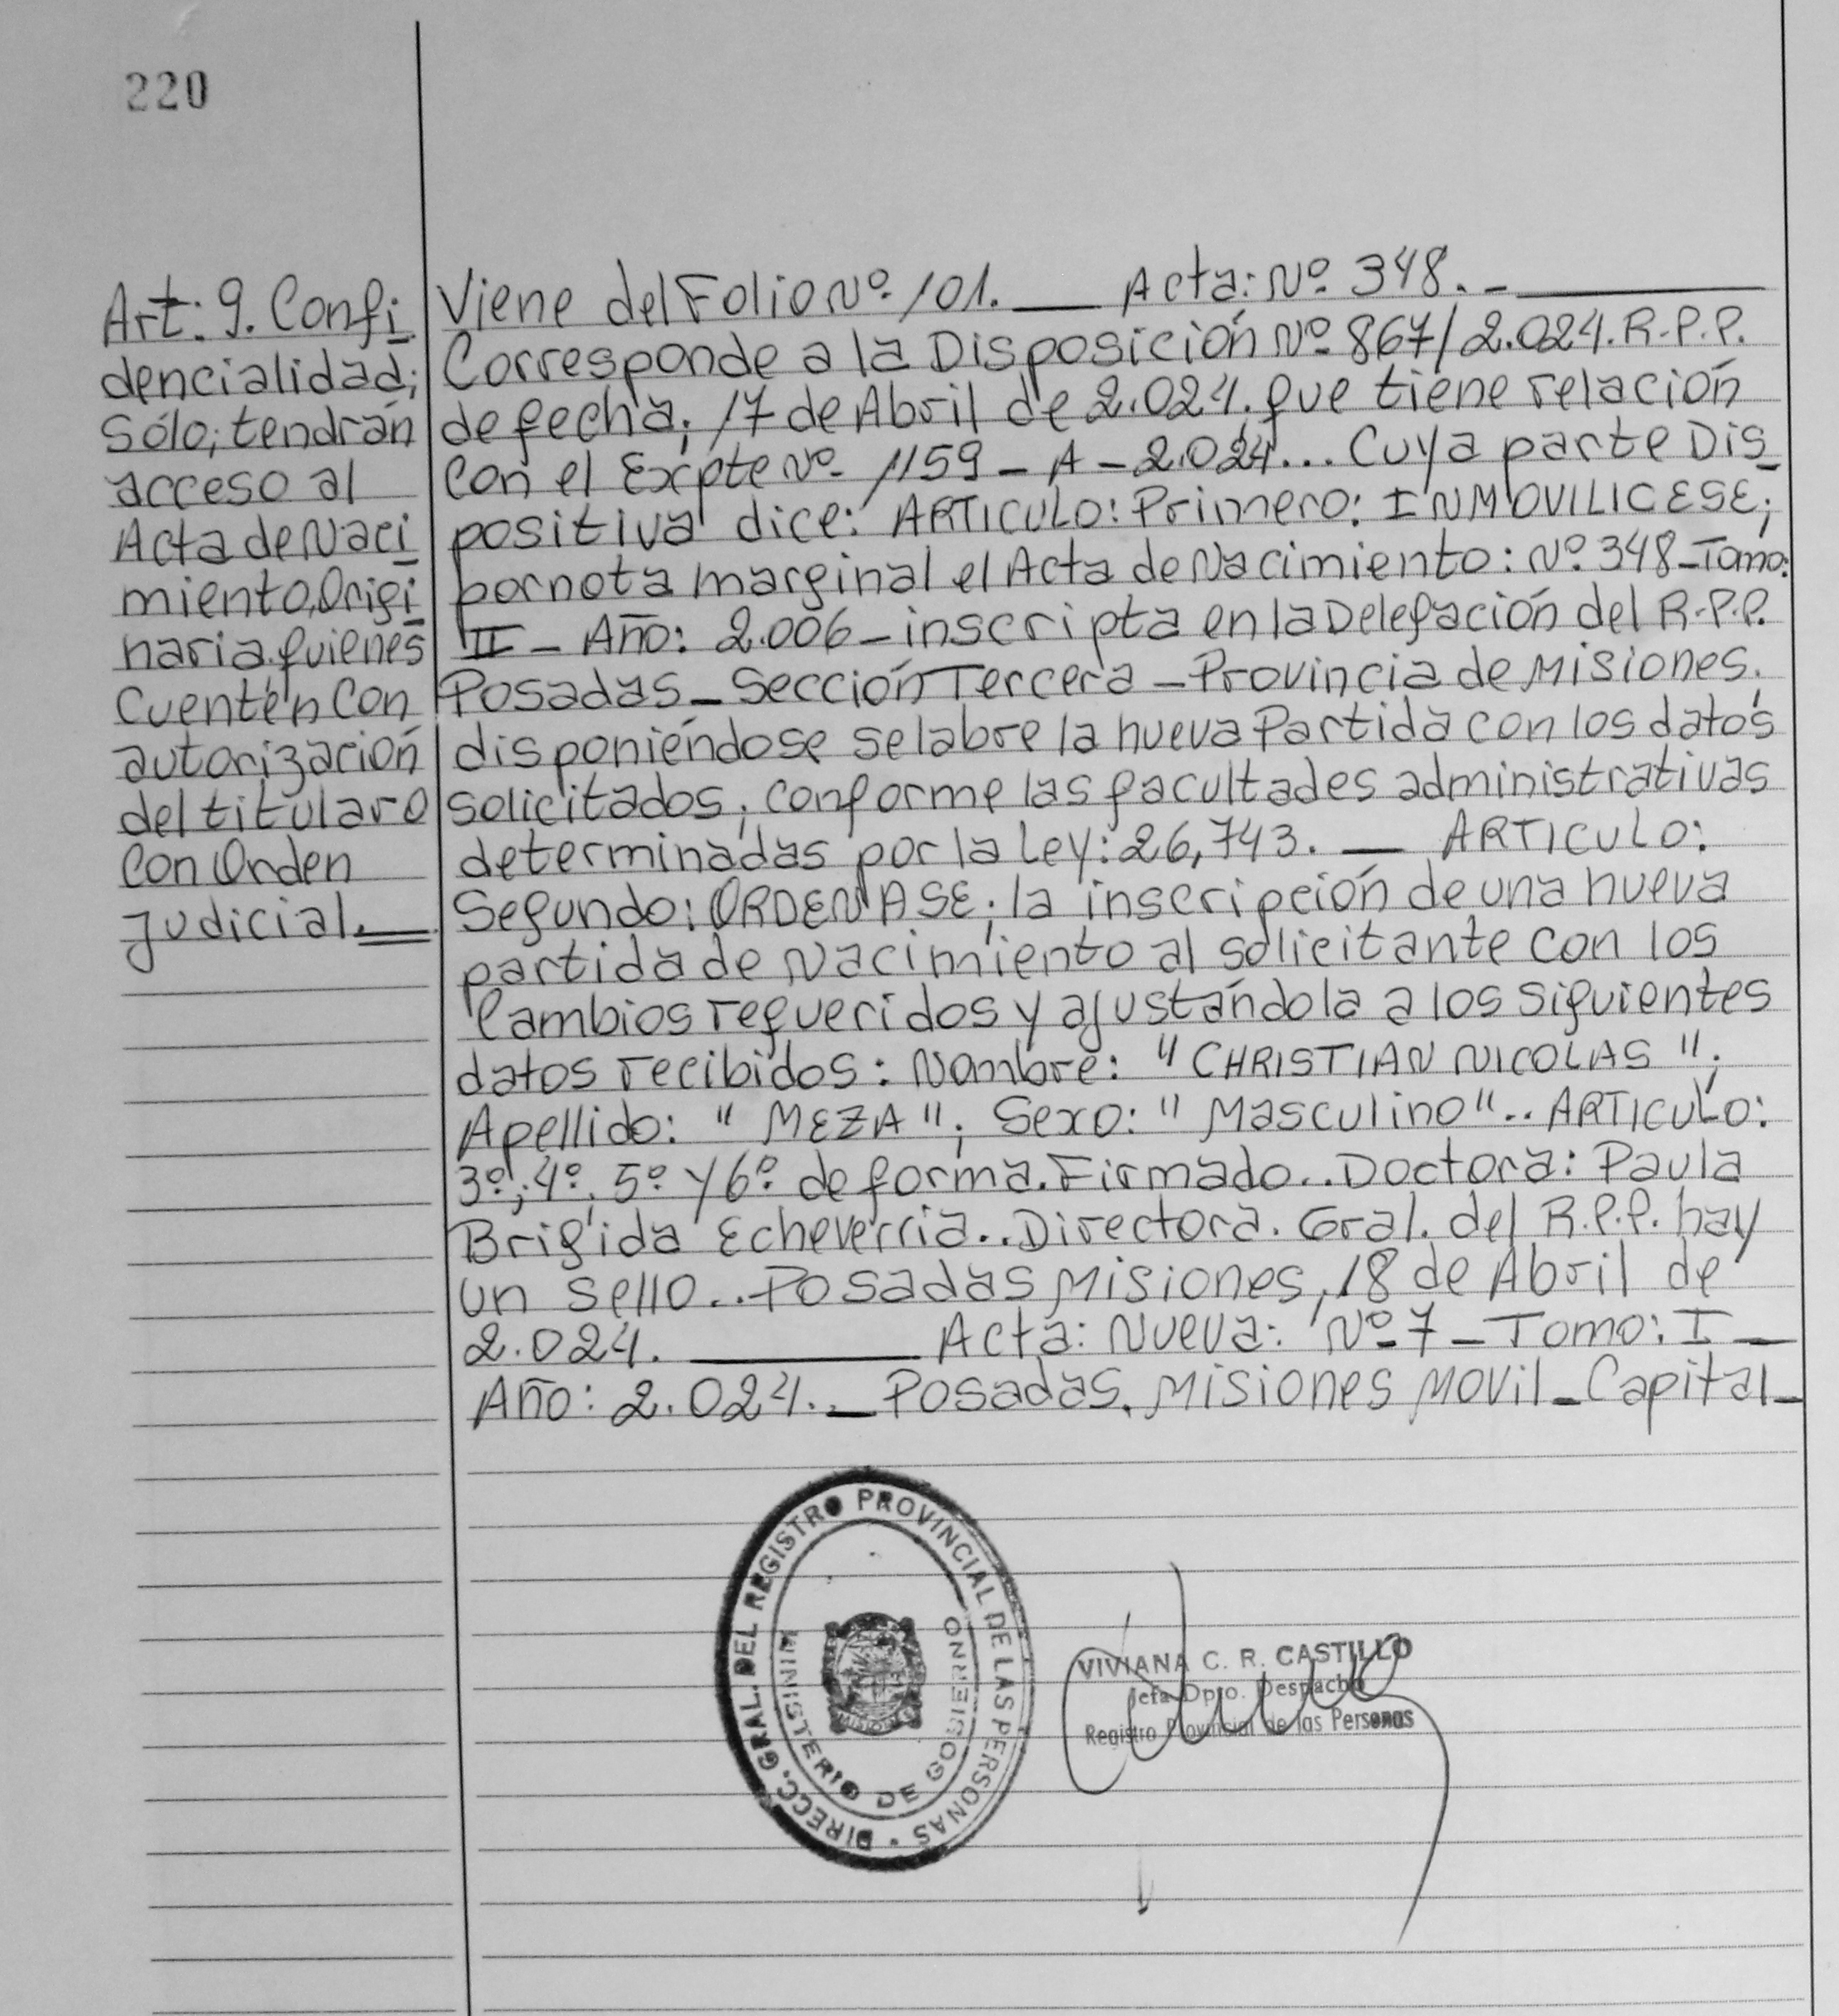 220
Art: 9. Confi
dencialidad;
Sólo; tendrán
acceso al
Acta de Naci
miento, Origi
naria. quienes
Cuenten Con
autorización
del titular o
Con Orden
Judicial.
Viene del Folio Nº 101. — Acta: Nº 348. -
Corresponde a la Disposición Nº 867/2.024. R.P.P.
de fecha; 17 de Abril de 2.024. que tiene relación
Con el Expte Nº 1159 - A - 2.024... Cuya parte Dis
positiva dice: ARTICULO: Primero: INMOVILICESE;
por nota marginal el Acta de Nacimiento: Nº 348 - Tomo:
II - Año: 2.006 - inscripta en la Delegación del R.P.P.
Posadas - Sección Tercera - Provincia de Misiones.
disponiéndose se labre la nueva Partida con los datos
solicitados; conforme las facultades administrativas
determinadas por la Ley: 26,743. — ARTICULO:
Segundo: ORDENASE; la inscripción de una nueva
partida de Nacimiento al solicitante con los
Cambios requeridos y ajustándola a los siguientes
datos recibidos: Nombre: "CHRISTIAN NICOLAS";
Apellido: "MEZA"; Sexo: "Masculino".. ARTICULO:
3º; 4º, 5º y 6º de forma. Firmado.. Doctora: Paula
Brigida Echeverria.. Directora. Gral. del R.P.P. hay
un sello.. Posadas Misiones, 18 de Abril de
2.024. — Acta: Nueva: Nº 7 - Tomo: I -
Año: 2.024. - Posadas. Misiones Movil - Capital -
DIRECC. GRAL. DEL REGISTRO PROVINCIAL DE LAS PERSONAS
MINISTERIO DE GOBIERNO
MISIONES
VIVIANA C. R. CASTILLO
Jefa Dpto. Despacho
Registro Provincial de las Personas